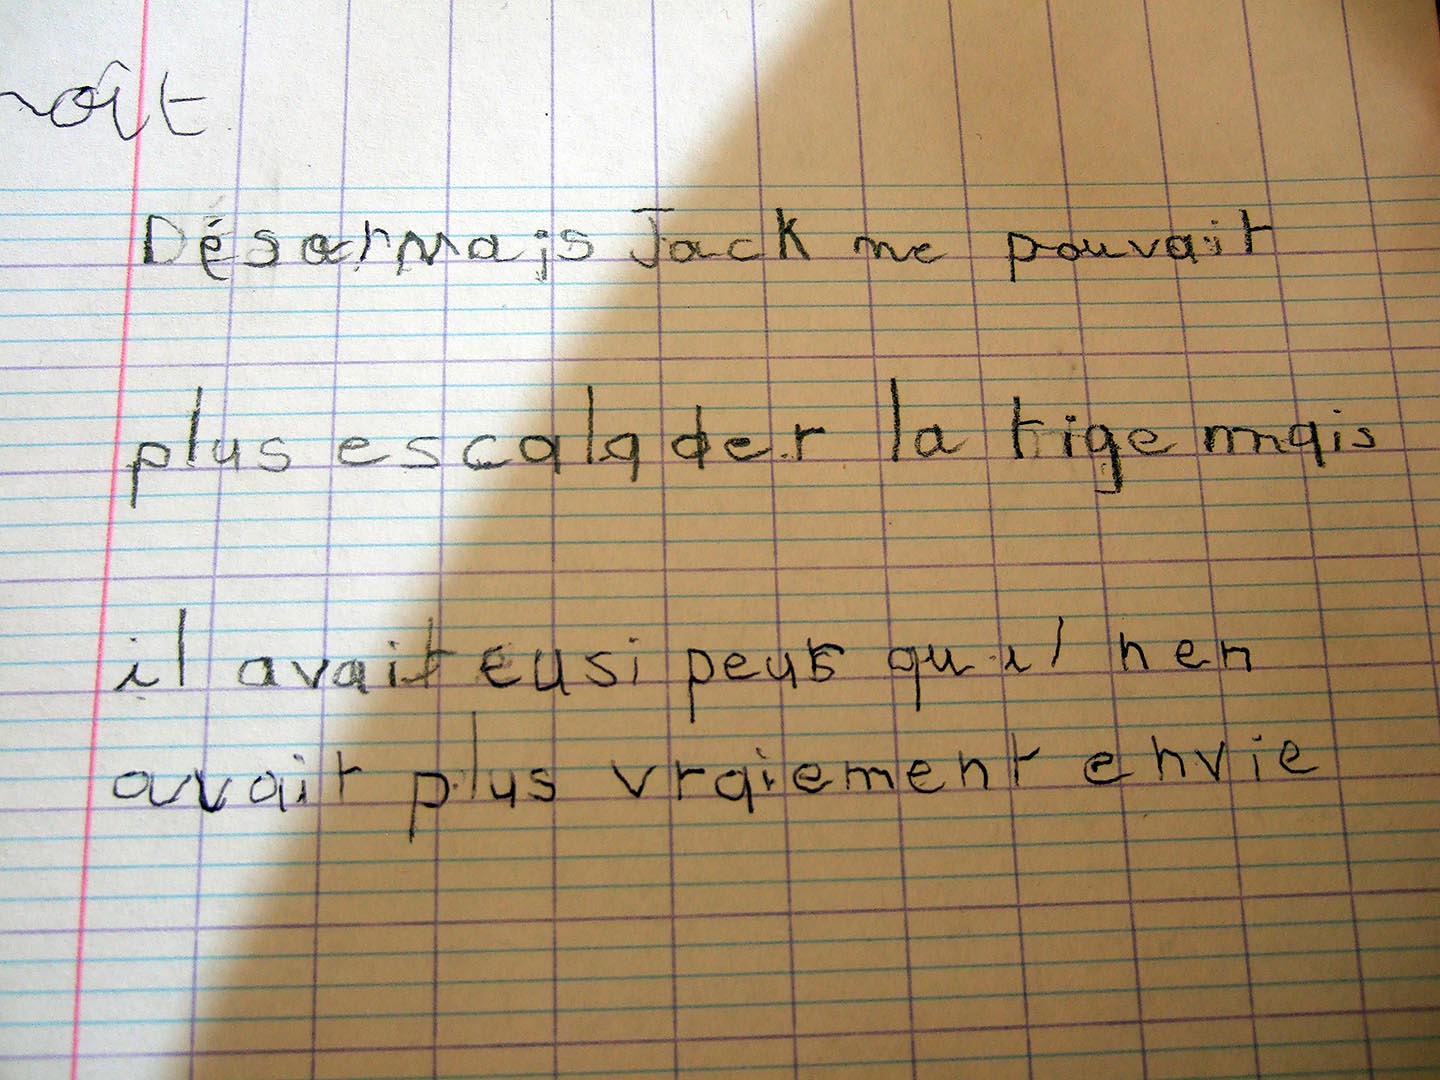 noît
Désormais Jack ne pouvait
plus escalader la tige mais
il avait eu si peur qu'il nen
avait plus vraiement envie